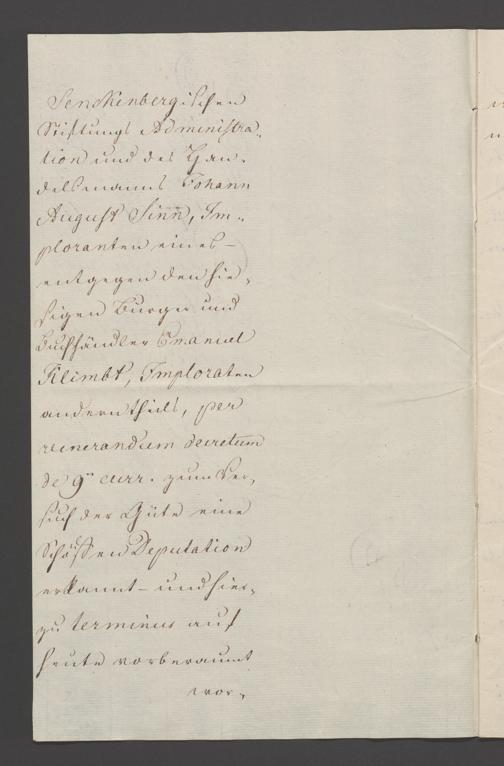 Senckenbergischen
Stiftungs Administra-
tion und des Han-
delsmanns Johann
August Sinn, Im-
ploranten eines -
entgegen den hie-
sigen Burger und
Buchhändler Emanuel
Klimbt, Imploraten
andern theils, per
venerandum decretum
de 9n curr. zum Ver-
such der Güte eine
Schöffen Deputation
erkannt - und hier-
zu terminus auf
heute vorberaumt
wor-